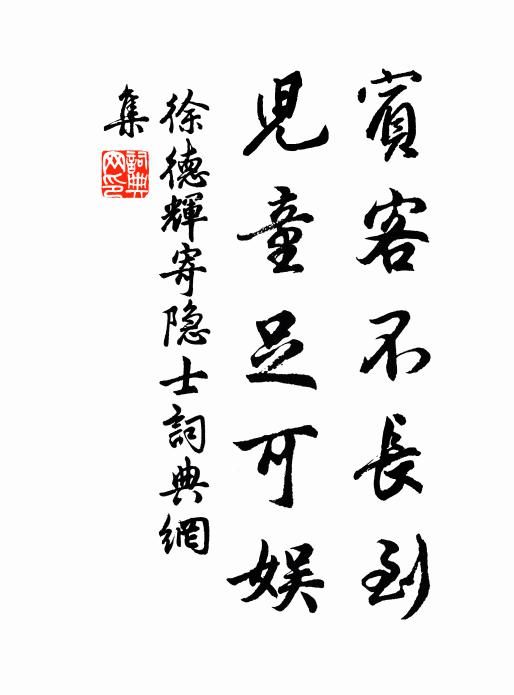 賓客不長到
兒童足可娛
徐德輝寄隐士詞典網
集
詞典網印